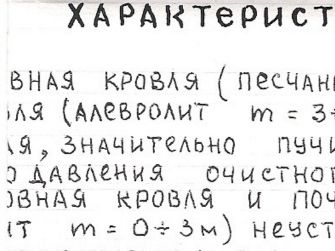 ХАРАКТЕРИСТ
ВНАЯ КРОВЛЯ (ПЕСЧАН
ЛЯ (АЛЕВРОЛИТ m = 3÷
Я, ЗНАЧИТЕЛЬНО ПУЧИ
О ДАВЛЕНИЯ ОЧИСТНОГ
ОВНАЯ КРОВЛЯ И ПОЧ
ИТ m = 0÷3м) НЕУСТ